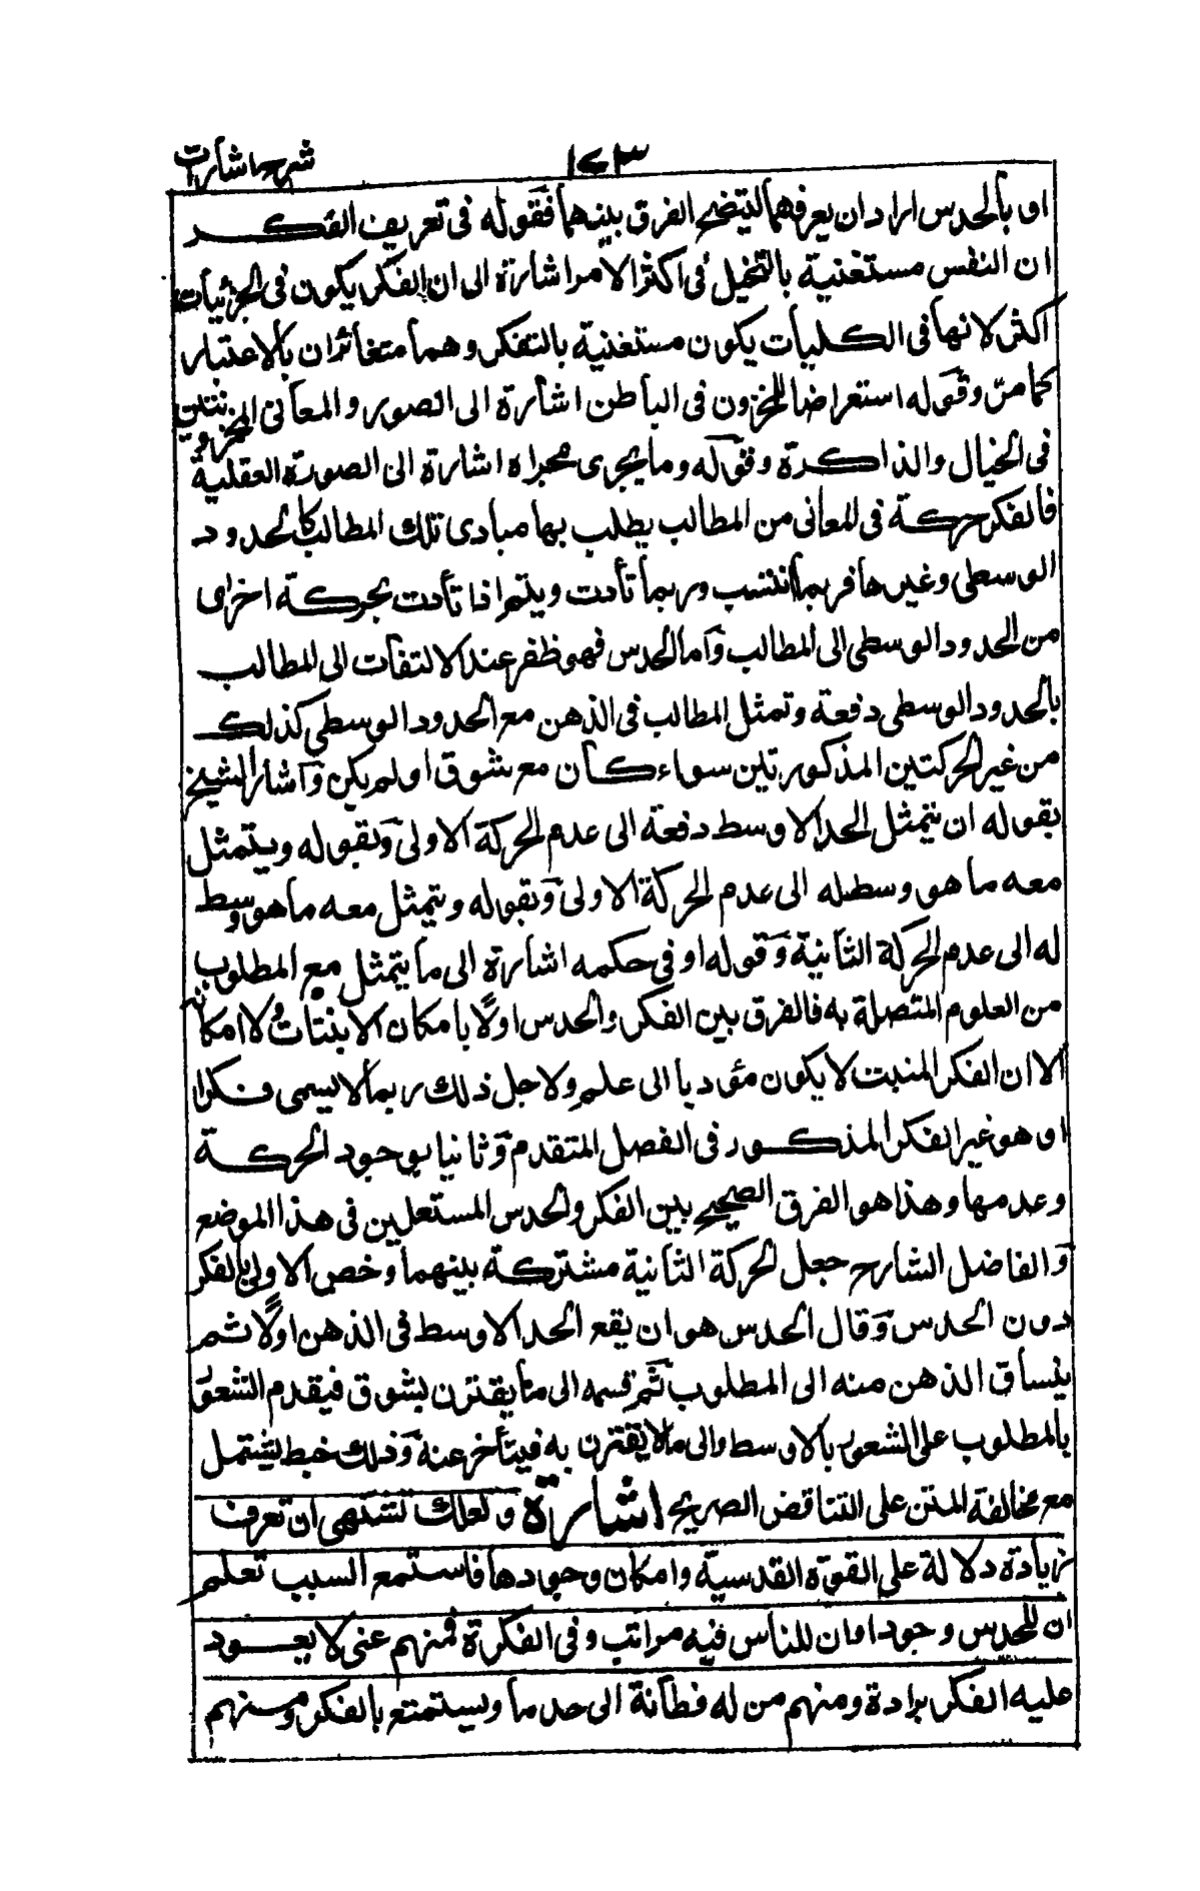 شرح اشارات
١٤٣
او بالحدس اراد ان يعرفهما ليتضح الفرق بينهما فقوله فى تعريف الفكر
ان النفس مستغنية بالتخيل فى اكثر الامر اشارة الى ان الفكر يكون فى الجزئيات
اكثر لانها فى الكليات يكون مستغنية بالتفكر وهما متغائران بالاعتبار
كما مر وقوله استعراضا للمخزون فى الباطن اشارة الى الصور والمعانى المخزونتين
فى الخيال والذاكرة وقوله وما يجرى مجراه اشارة الى الصورة العقلية
فالفكر حركة فى المعانى من المطالب يطلب بها مبادى تلك المطالب كالحدود
الوسطى وغيرها فربما انبتت وربما تأدت ويتم اذا تأدت بحركة اخرى
من الحدود الوسطى الى المطالب واما الحدس فهو ظفر عند الالتفات الى المطالب
بالحدود الوسطى دفعة وتمثل المطالب فى الذهن مع الحدود الوسطى كذلك
من غير الحركتين المذكورتين سواء كان مع شوق او لم يكن واشار الشيخ
بقوله ان يتمثل الحد الاوسط دفعة الى عدم الحركة الاولى وبقوله ويتمثل
معه ما هو وسط له الى عدم الحركة الاولى وبقوله ويتمثل معه ما هو وسط
له الى عدم الحركة الثانية وقوله او فى حكمه اشارة الى ما يتمثل مع المطلوب
من العلوم المتصلة به فالفرق بين الفكر والحدس اولًا بامكان الانبتات ولا امكانه
الا ان الفكر المنبت لا يكون مؤديا الى علم ولاجل ذلك ربما لا يسمى فكرا
او هو غير الفكر المذكور فى الفصل المتقدم وثانيا بوجود الحركة
وعدمها وهذا هو الفرق الصحيح بين الفكر والحدس المستعملين فى هذا الموضع
والفاضل الشارح جعل الحركة الثانية مشتركة بينهما وخص الاولى بالفكر
دون الحدس وقال الحدس هو ان يقع الحد الاوسط فى الذهن اولًا ثم
ينساق الذهن منه الى المطلوب ثم قسمه الى ما يقترن بشوق فيقدم الشعور
بالمطلوب على الشعور بالاوسط والى ما لا يقترن به فيتأخر عنه وذلك خبط يشتمل
مع مخالفة المتن على التناقض الصريح اشارة ولعلك تشتهى ان تعرف
زيادة دلالة على القوة القدسية وامكان وجودها فاستمع السبب تعلم
ان للحدس وجودا وان للناس فيه مراتب وفى الفكرة فمنهم غنى لا يعود
عليه الفكر برادة ومنهم من له فطانة الى حد ما ويستمتع بالفكر ومنهم